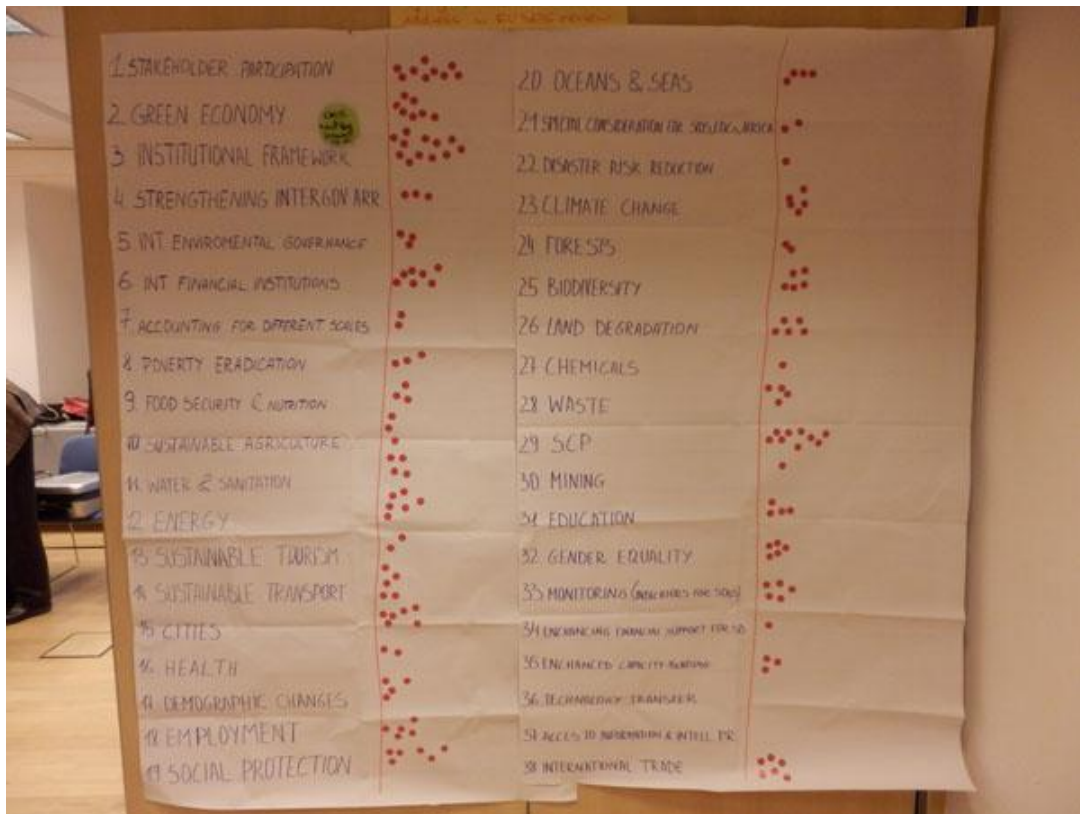 1. STAKEHOLDER PARTICIPATION
2. GREEN ECONOMY
3. INSTITUTIONAL FRAMEWORK
4. STRENGTHENING INTERGOV ARR
5. INT ENVIROMENTAL GOVERNANCE
6. INT FINANCIAL INSTITUTIONS
7. ACCOUNTING FOR DIFFERENT SCALES
8. POVERTY ERADICATION
9. FOOD SECURITY & NUTRITION
10 SUSTAINABLE AGRICULTURE
11. WATER & SANITATION
12 ENERGY
13 SUSTAINABLE TOURISM
14 SUSTAINABLE TRANSPORT
15 CITIES
16. HEALTH
17 DEMOGRAPHIC CHANGES
18 EMPLOYMENT
19 SOCIAL PROTECTION
20 OCEANS & SEAS
21 SPECIAL CONSIDERATION FOR AFRICA
22 DISASTER RISK REDUCTION
23 CLIMATE CHANGE
24 FORESTS
25 BIODIVERSITY
26 LAND DEGRADATION
27 CHEMICALS
28 WASTE
29 SCP
30 MINING
31 EDUCATION
32 GENDER EQUALITY
33 MONITORING (INDICATORS FOR SDGS)
34 ENCHANCING FINANCIAL SUPPORT FOR SD
35 ENCHANCED CAPACITY-BUILDING
36 TECHNOLOGY TRANSFER
37 ACCES TO INFORMATION & INTELL PR.
38 INTERNATIONAL TRADE